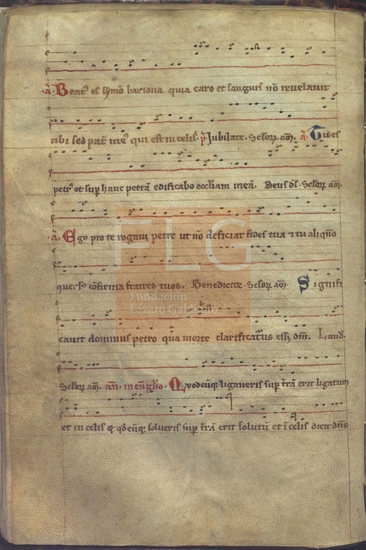 a. Beat⁹ es symō bariona quia caro et sanguis nō revelavit
tibi sed pat̄ me⁹ qui est in celis. p̄ Jubilate. Seculorū am̄. a. Tu es
petr⁹ et sup hanc petrā edificabo eccliam meā. Deus d̄s. am̄.
a. Ego pro te rogavi petre ut nō deficiat fides tua et tu aliqn̄o
cōfirma fratres tuos. Benedicite. am̄. Signifi
FLG
Fundación
Lázaro Galdiano
cavit dominus petro qua morte clarificatur⁹ eēt dm̄. Laud.
am̄. in evāglio. Qvodcūq; ligaveris sup t̄rā erit ligatum
et in celis et qdcūq; solveris sup t̄rā erit solutū et ī celis dicit dn̄s